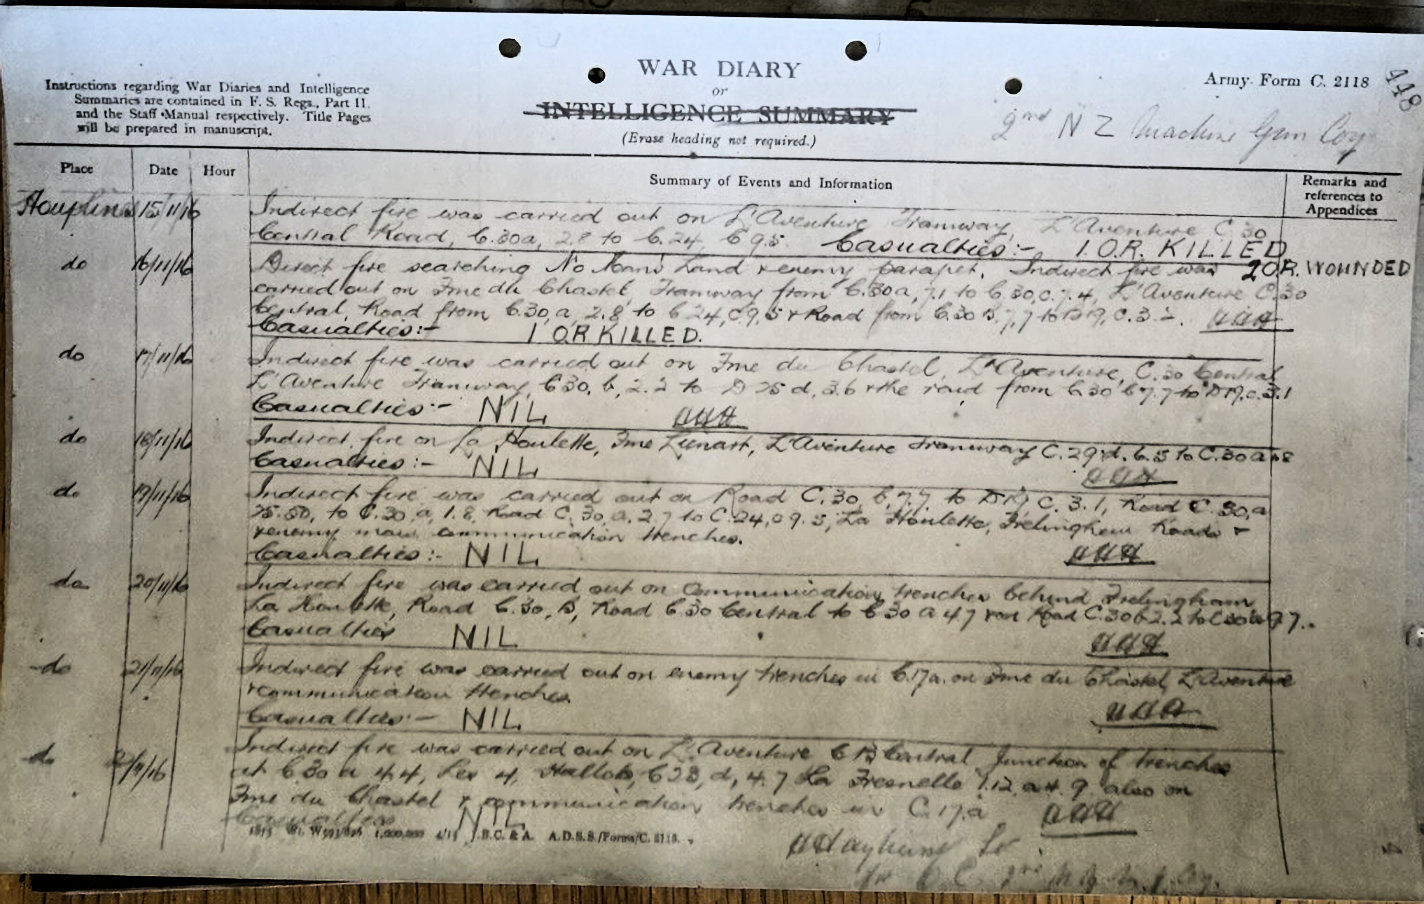 WAR DIARY
or
INTELLIGENCE SUMMARY
(Erase heading not required.)
Instructions regarding War Diaries and Intelligence
Summaries are contained in F. S. Regs., Part II.
and the Staff Manual respectively. Title Pages
will be prepared in manuscript.
Army Form C. 2118
448
2nd N Z Machine Gun Coy
Place Date Hour Summary of Events and Information Remarks and
references to
Appendices
Houplines 15/11/16 Indirect fire was carried out on L'Aventure Tramway, L'Aventure C.30
Central Road, C.30a, 2.8 to C.24, C 9.5. Casualties:- 1.O.R. KILLED
2 O.R. WOUNDED
do 16/11/16 Direct fire searching No Mans Land & enemy parapet. Indirect fire was
carried out on Fme du Chastel, Tramway from C.30a,7.1 to C.30,c.7.4, L'Aventure C.30
Central, Road from C.30,a, 2.8 to C.24,C.9.5 & Road from C.30 B.7.7 to D19,C.3.2. HHH
Casualties:- 1 O.R KILLED.
do 17/11/16 Indirect fire was carried out on Fme du Chastel, L'Aventure, C.30 Central
L'Aventure Tramway, C30, b, 2.2 to D 25 d, 3.6 & the road from C30 b 7.7 to D19.c.3.1
Casualties:- NIL HHH
do 18/11/16 Indirect fire on La Houlette, Fme Lenart, L'Aventure Tramway C.29.d.6.5 to C.30a
Casualties:- NIL HHH
do 19/11/16 Indirect fire was carried out on Road C.30, b,7.7 to D19 C.3.1, Road C.30,a
25.50, to C.30,a, 1.8, Road C.30,a.2.7 to C.24,c 9.5, La Houlette, Frelinghem Roads &
& enemy main communication trenches.
Casualties:- NIL HHH
do 20/11/16 Indirect fire was carried out on communication trenches behind Frelinghem
La Houlette, Road C.30,B, Road C.30 Central to C 30 a 47 & on Road C.30b2.2 to
Casualties NIL HHH
do 21/11/16 Indirect fire was carried out on enemy trenches in C.17a. on Fme du Chastel, L'Aventure
& communication trenches.
Casualties:- NIL HHH
do /11/16 Indirect fire was carried out on L'Aventure Central Junction of trenches
at C30 a 4.4, Les 4 Hallots, C23, d, 4.7 La Fresnelle I.12.a 4.9 also on
Fme du Chastel & communication trenches in C.17.a HHH
Casualties NIL
1,000,000 4/15 J.B.C. & A. A.D.S.S./Forms/C. 2118.
Lt
O.C. 2nd Coy.